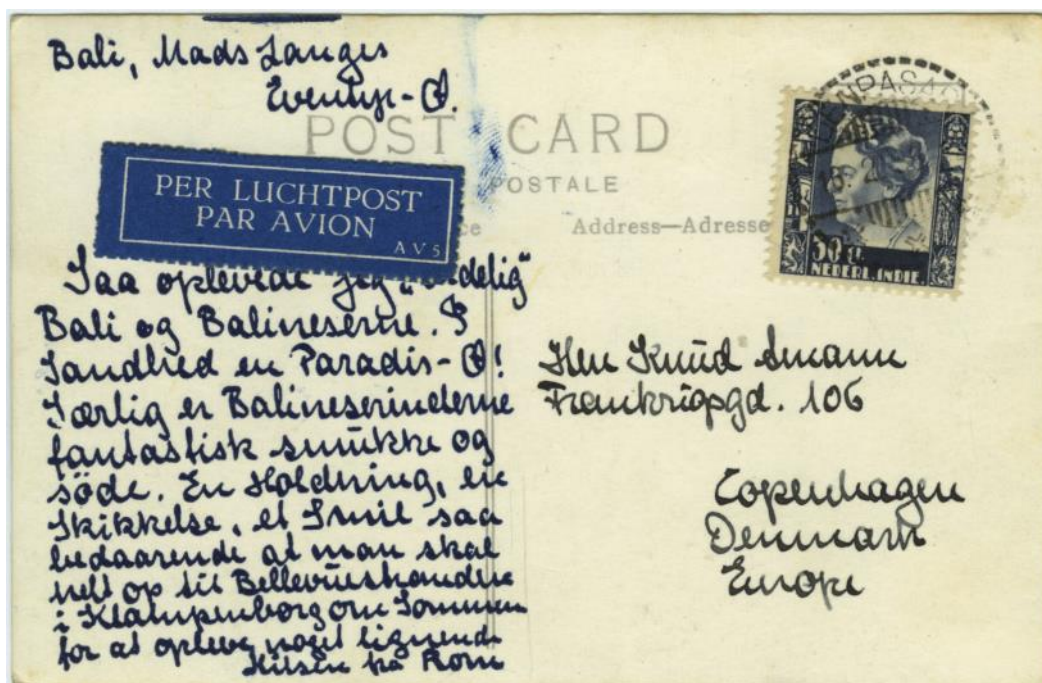 Bali, Mads Langes
Eventyr-Ø.
POST CARD
POSTALE
PER LUCHTPOST
PAR AVION
AV5
Address—Adresse
NPASA
30 ct
NEDERL. INDIE
Saa oplevede jeg "endelig"
Bali og Balineserne. I
Sandhed en Paradis-Ø!
Særlig er Balineserinderne
fantastisk smukke og
søde. En Holdning, en
Skikkelse, et Smil saa
bedaarende at man skal
helt op til Bellevuestranden
i Klampenborg om Sommeren
for at opleve noget lignende
Hilsen fra
Herr Knud Amann
Frankrigsgd. 106
Copenhagen
Denmark
Europe